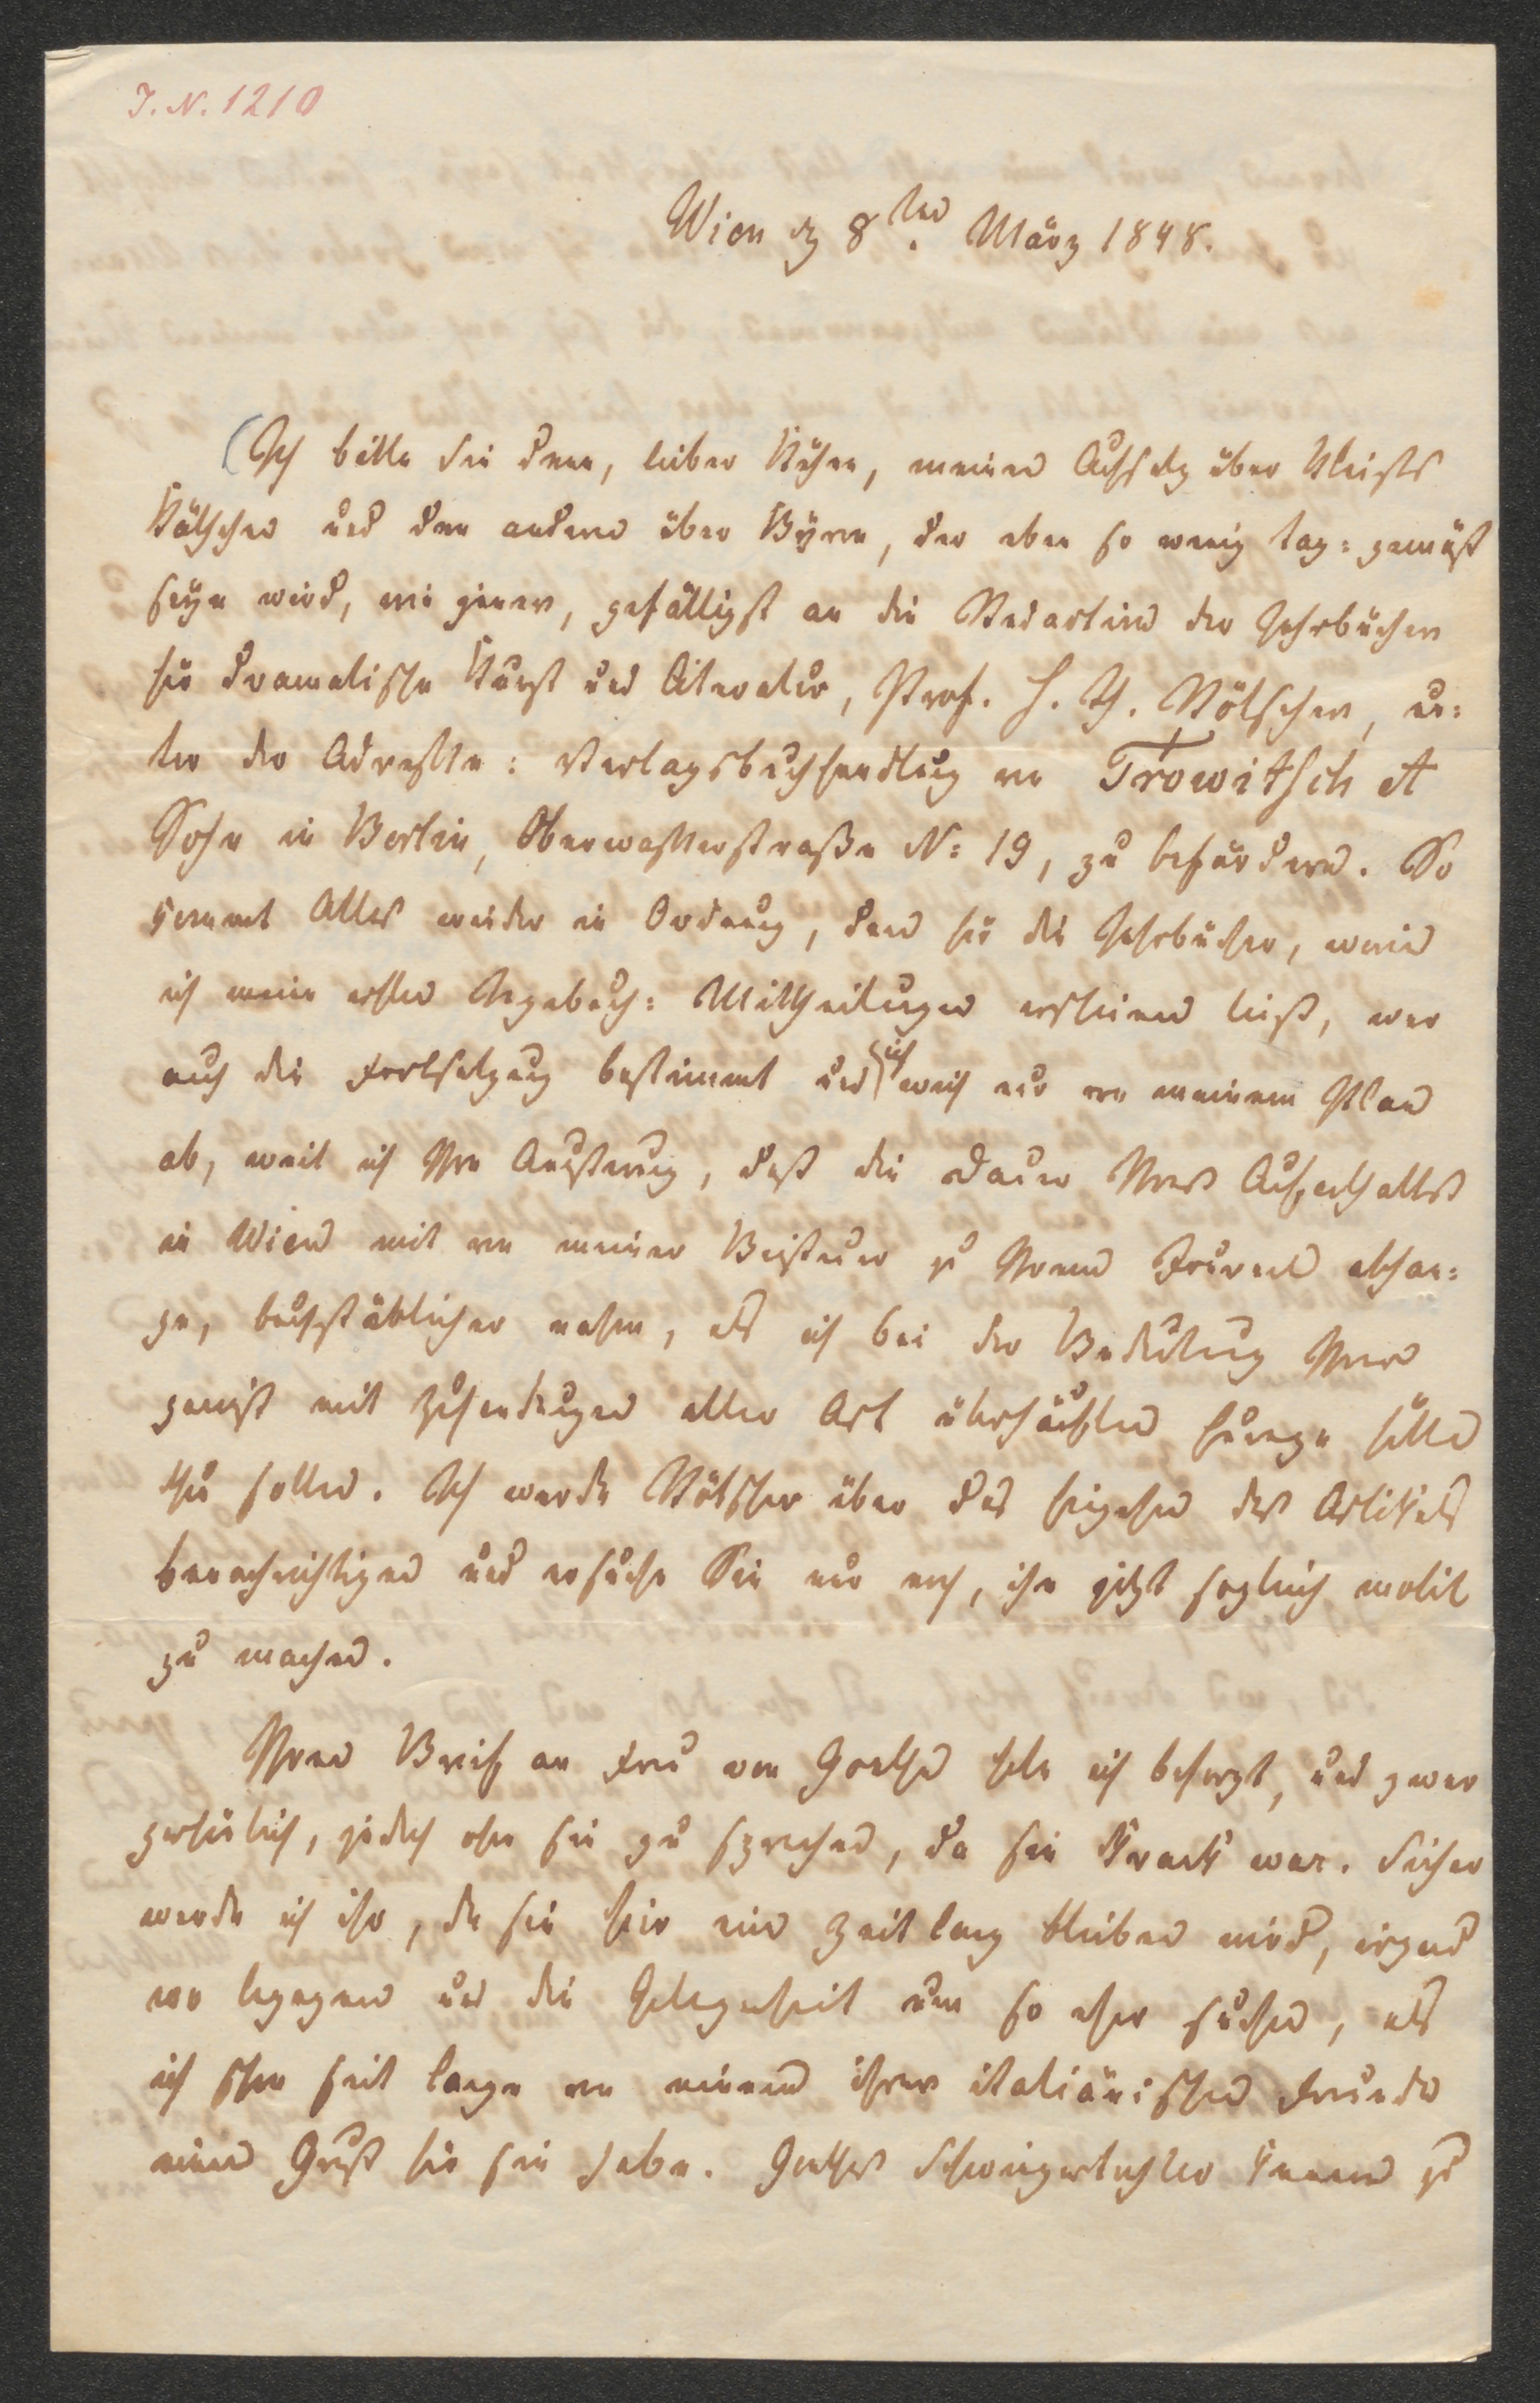 J. N. 1210
Wien d 8ten März 1848.
(Ich bitte Sie denn, lieber Kühne, meinen Aufsatz über Kleists
Käthchen und den andern über Byron, der eben so wenig tag=gemäß
seyn wird, wie jener, gefälligst an die Redaction der Jahrbücher
für dramatische Kunst und Literatur, Prof. H. Th. Rötscher, un=
ter der Adresse: Verlagsbuchhandlung von Trowitsch et
Sohn in Berlin, Oberwasserstraße N: 19, zu befördern. So
kommt Alles wieder in Ordnung, denn für die Jahrbücher, worin
ich meine ersten Tagebuch=Mittheilungen erscheinen ließ, war
auch die Fortsetzung bestimmt und ich wich nur von meinem Plan
ab, weil ich Ihre Aeußerung, daß die Dauer Ihres Aufenthalts
in Wien mit von meiner Beisteuer zu Ihrem Journal abhan=
ge, buchstäblicher nahm, als ich bei der Bedeutung Ihres
gewiß mit Zusendungen aller Art überhäuften hätte
thun sollen. Ich werde Rötscher über das Eingehen des Artikels
benachrichtigen und ersuche Sie nur noch, ihn jetzt sogleich mobil
zu machen.
Ihren Brief an Frau von Goethe habe ich besorgt, und zwar
persönlich, jedoch ohne sie zu sprechen, da sie krank war. Sicher
werde ich ihr, da sie hier eine Zeitlang bleiben wird, irgend
wo begegnen und die Gelegenheit um so eher suchen, als
ich schon seit lange von einem ihrer italiänischen Freunde
einen Gruß für sie habe. Goethes Schwiegertochter kennen zu